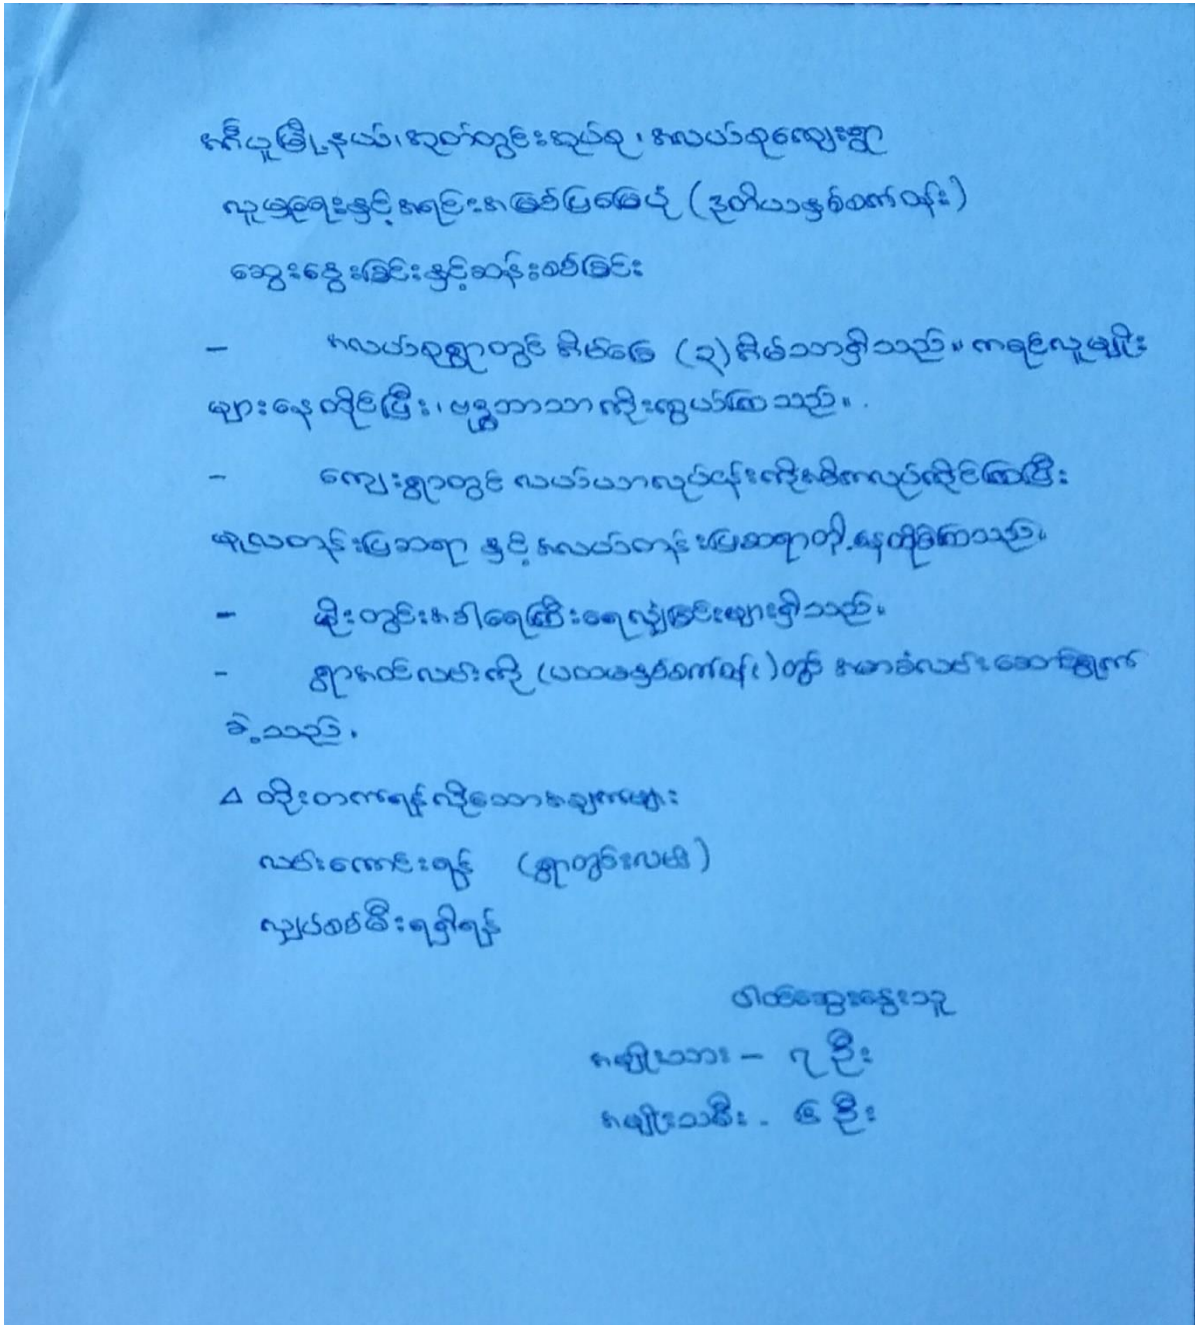 အင်္ဂပူမြို့နယ်၊ အုတ်တွင်းအုပ်စု၊ အလယ်စုကျေးရွာ
လူမှုရေးနှင့်အရင်းအမြစ်ပြမြေပုံ (ဒုတိယနှစ်စက်ဝန်း)
ဆွေးနွေးခြင်းနှင့်ဆန်းစစ်ခြင်း
- အလယ်စုရွာတွင် အိမ်ခြေ (၃) အိမ်သာရှိသည်။ ကရင်လူမျိုး
များနေထိုင်ပြီး၊ ဗုဒ္ဓဘာသာကိုးကွယ်ကြသည်။
- ကျေးရွာတွင် လယ်ယာလုပ်ငန်းကိုအဓိကလုပ်ကိုင်ကြပြီး
မူလတန်းပြဆရာ နှင့် အလယ်တန်းပြဆရာတို့နေထိုင်ကြသည်။
- မိုးတွင်းအခါရေကြီးရေလျှံခြင်းများရှိသည်။
- ရွာအဝင်လမ်းကို (ပထမနှစ်စက်ဝန်း) တွင် အမာခံလမ်းဆောင်ရွက်
ခဲ့သည်။
Δ တိုးတက်ရန်လိုသောအချက်များ
လမ်းကောင်းရန် (ရွာတွင်းလမ်း)
လျှပ်စစ်မီးရရှိရန်
ပါဝင်ဆွေးနွေးသူ
အမျိုးသား - ၇ ဦး
အမျိုးသမီး - ၆ ဦး